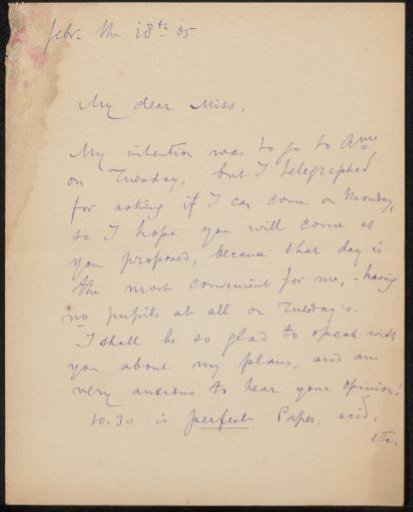 Febr. the 18th 05
My dear Miss,
My intention was to go to Ame
on Tuesday, but I telegraphed
for asking if I can come on Monday,
so I hope you will come as
you proposed, because that day is
the most convenient for me, - having
no pupils at all on Tuesday's.
I shall be so glad to speak with
you about my plans, and am
very anxious to hear your opinion!
10.30 is perfect. Paper, acid,
etc.